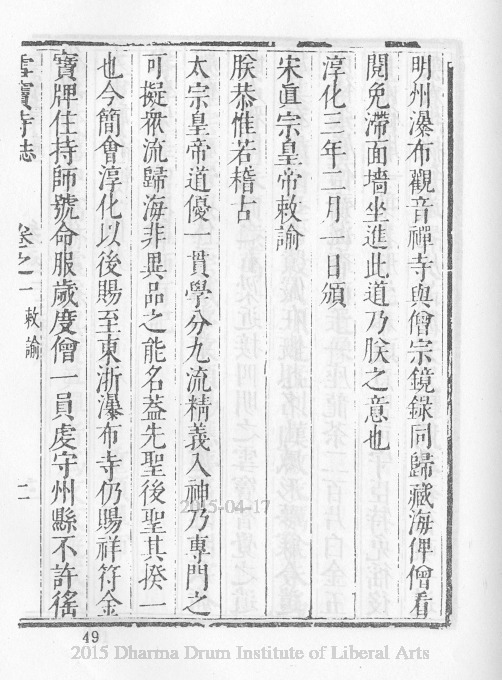 明州瀑布觀音禪寺與僧宗鏡錄同歸藏海俾僧看
閱免滯面墻坐進此道乃朕之意也
淳化三年二月一日頒
宋眞宗皇帝敕諭
朕恭惟若稽古
太宗皇帝道優一貫學分九流精義入神乃專門之
可擬㳅流歸海非異品之能名蓋先聖後聖其揆一
也今簡會淳化以後賜至東浙瀑布寺仍賜祥符金
寳牌住持師號命服歲度僧一員處守州縣不許徭
雪竇寺誌 卷之一 敕諭 二
2015-04-17
49
2015 Dharma Drum Institute of Liberal Arts